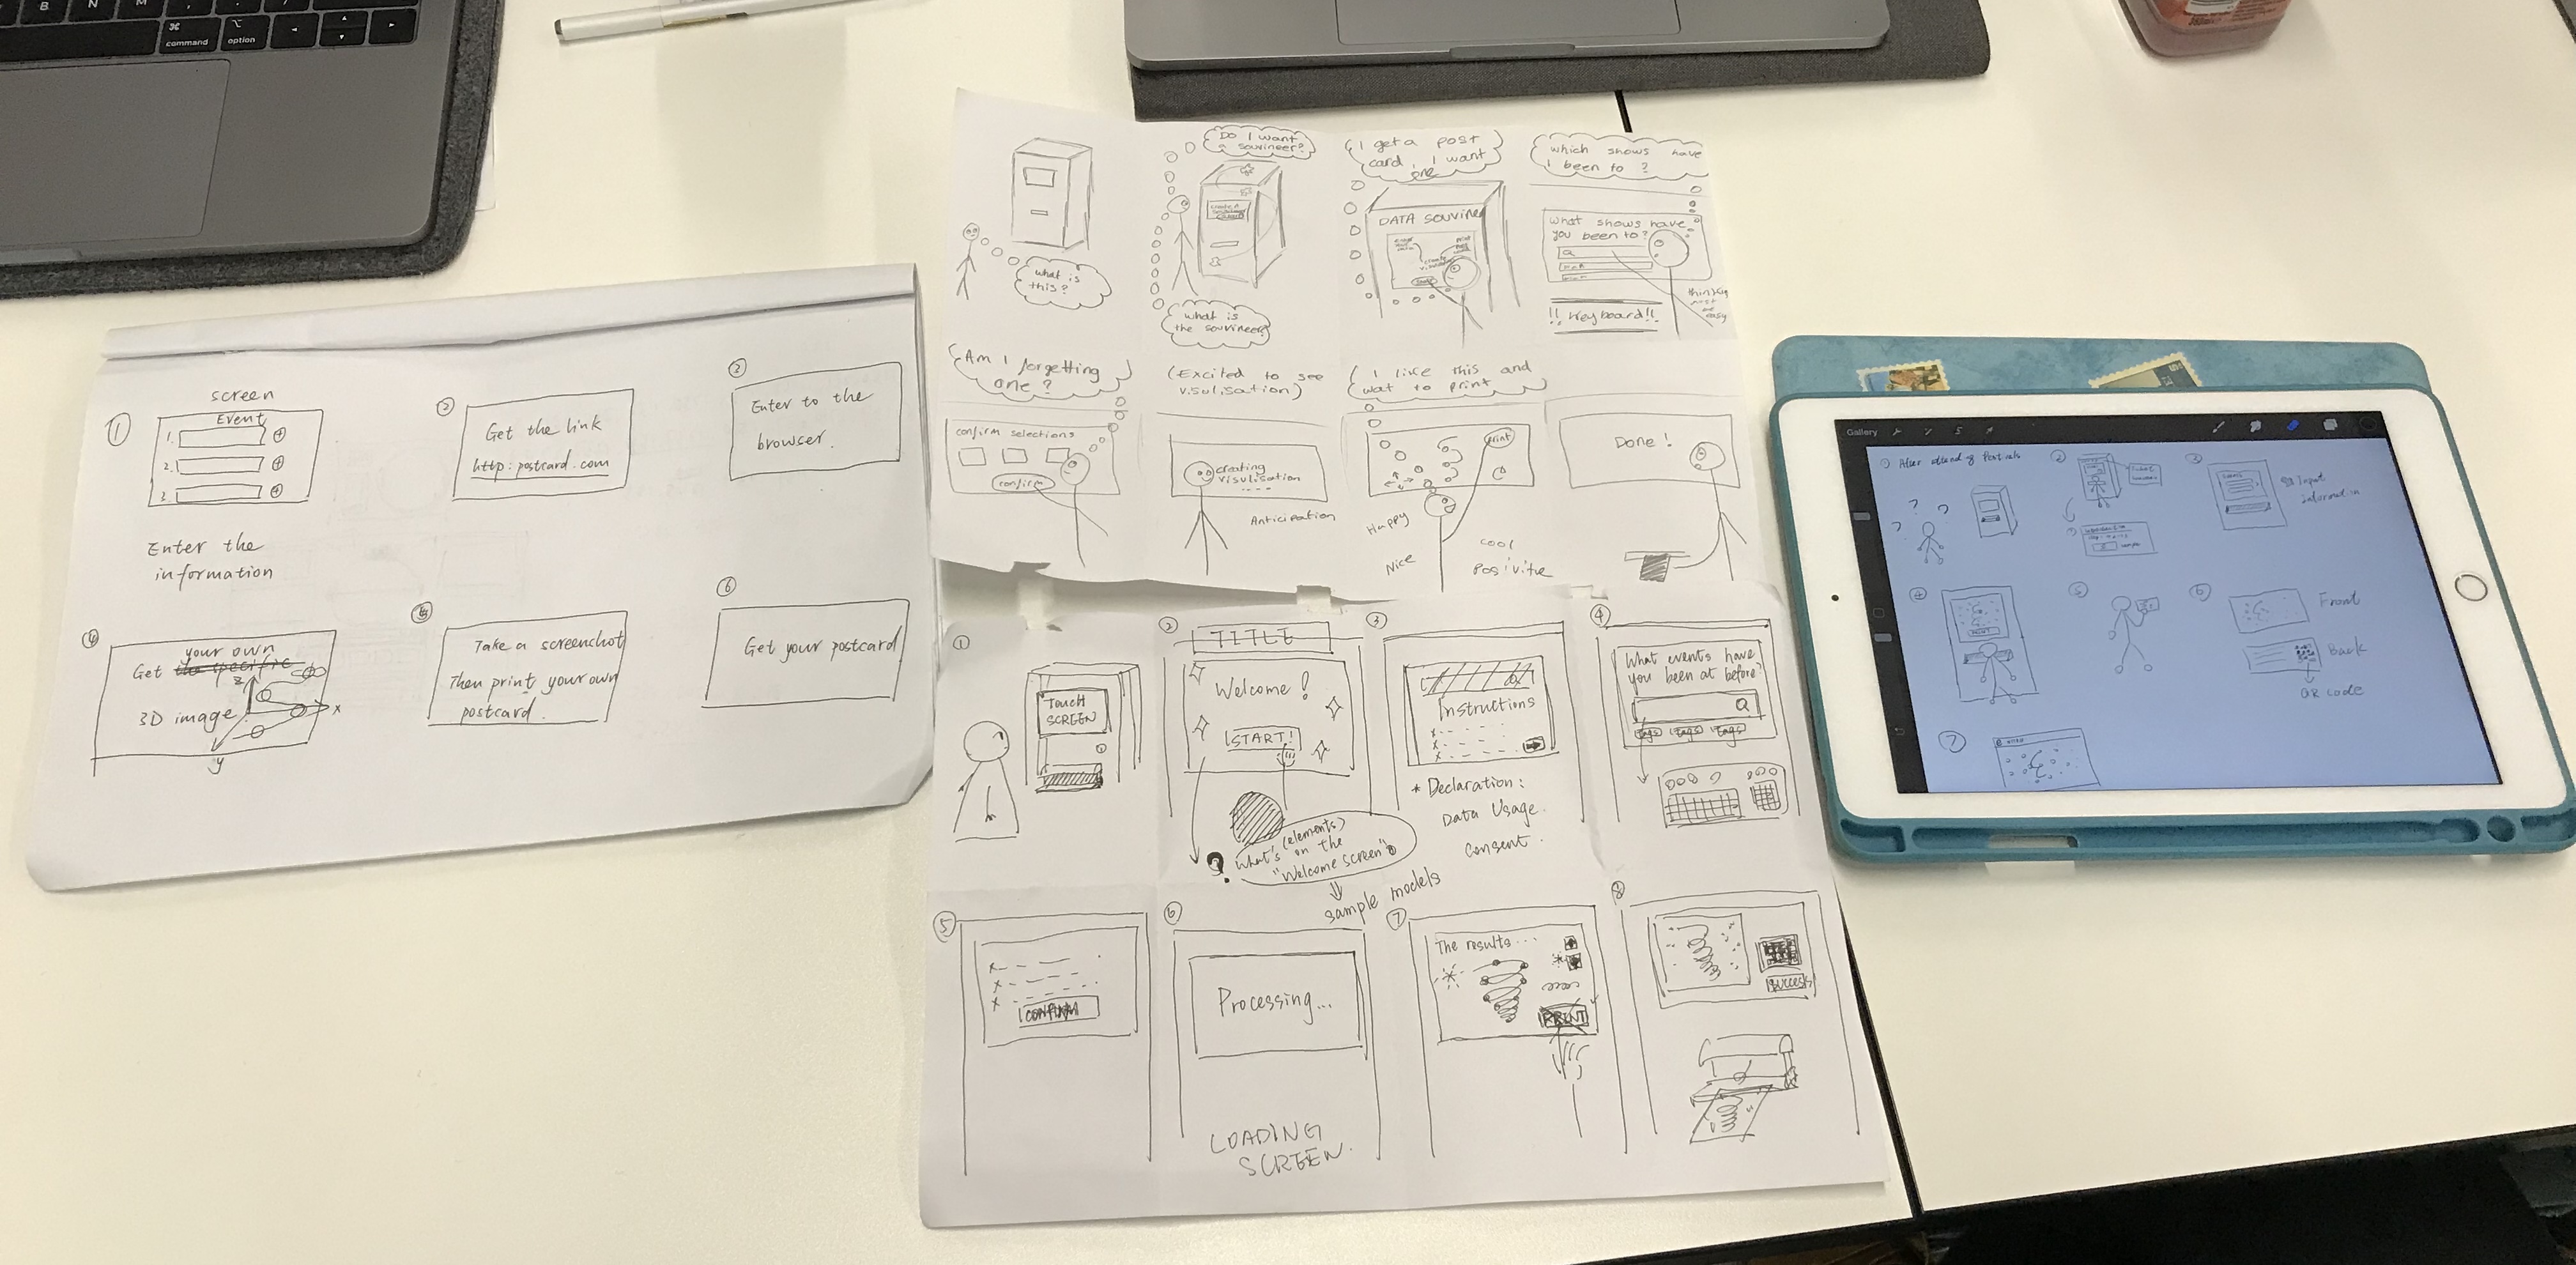 B
N
M
⌘
command
⌥
option
screen
①
Event
1.
2.
3.
Enter the
information
②
Get the link
http:postcard.com
③
Enter to the
browser.
④
your own
Get the specific
3D image
z
x
y
⑤
Take a screenshot
Then print your own
postcard.
⑥
Get your postcard
what is
this?
Do I want
a souvineer?
what is
the souvineer?
I get a post
card, I want
one
DATA SOUVINE
which shows have
I been to ?
What shows have
you been to?
!! Keyboard!!
Am I forgetting
one?
confirm selections
confirm
(Excited to see
visulisation)
creating
visulisation
....
Anticipation
I like this and
wat to print
print
Happy
Nice
cool
Positive
Done!
①
Touch
SCREEN
②
TITLE
Welcome!
START!
What's (elements) on the
"Welcome screen"?
sample models
③
Instructions
* Declaration:
Data Usage
Consent.
④
What events have
you been at before?
tags tags tags
⑤
CONFIRM
⑥
Processing...
LOADING
SCREEN.
⑦
The results...
PRINT
⑧
success
Gallery
① After attend of festivals
②
③
Input
information
④
⑤
⑥
Front
Back
QR code
⑦